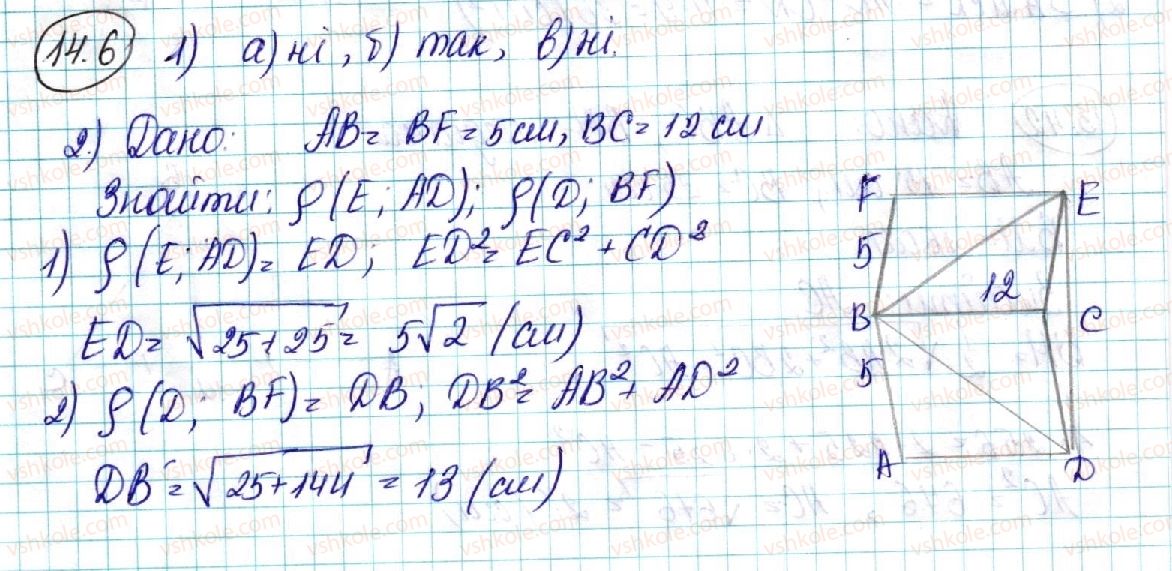 14.6 1) а) ні, б) так, в) ні.
2.) Дано: AB = BF = 5 см, BC = 12 см
Знайти: ρ(E; AD); ρ(D; BF)
1) ρ(E; AD) = ED; ED² = EC² + CD²
ED = √25+25 = 5√2 (см)
2) ρ(D; BF) = DB; DB² = AB² + AD²
DB = √25+144 = 13 (см)
F E
5
12
B C
5
A D
vshkole.com